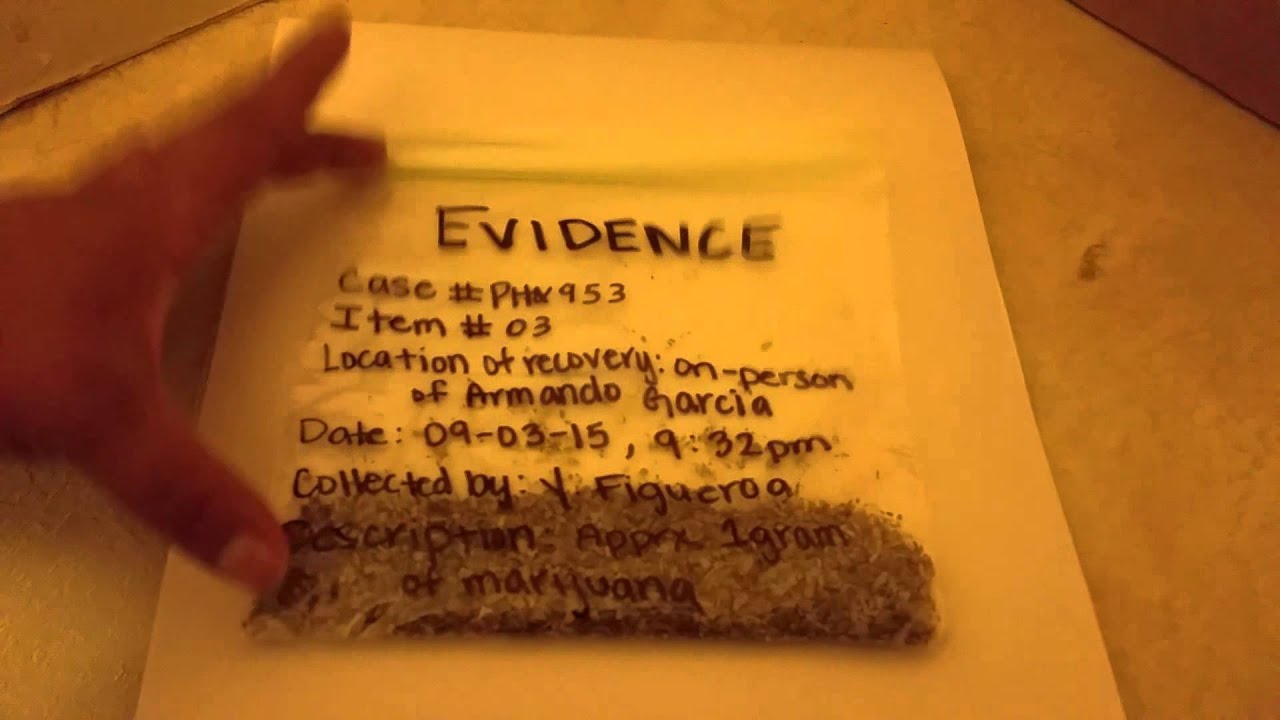 EVIDENCE
Case # PHX953
Item # 03
Location of recovery: on-person
of Armando Garcia
Date: 09-03-15, 9:32pm
Collected by: Y. Figueroa
Description: Apprx 1gram
of marijuana